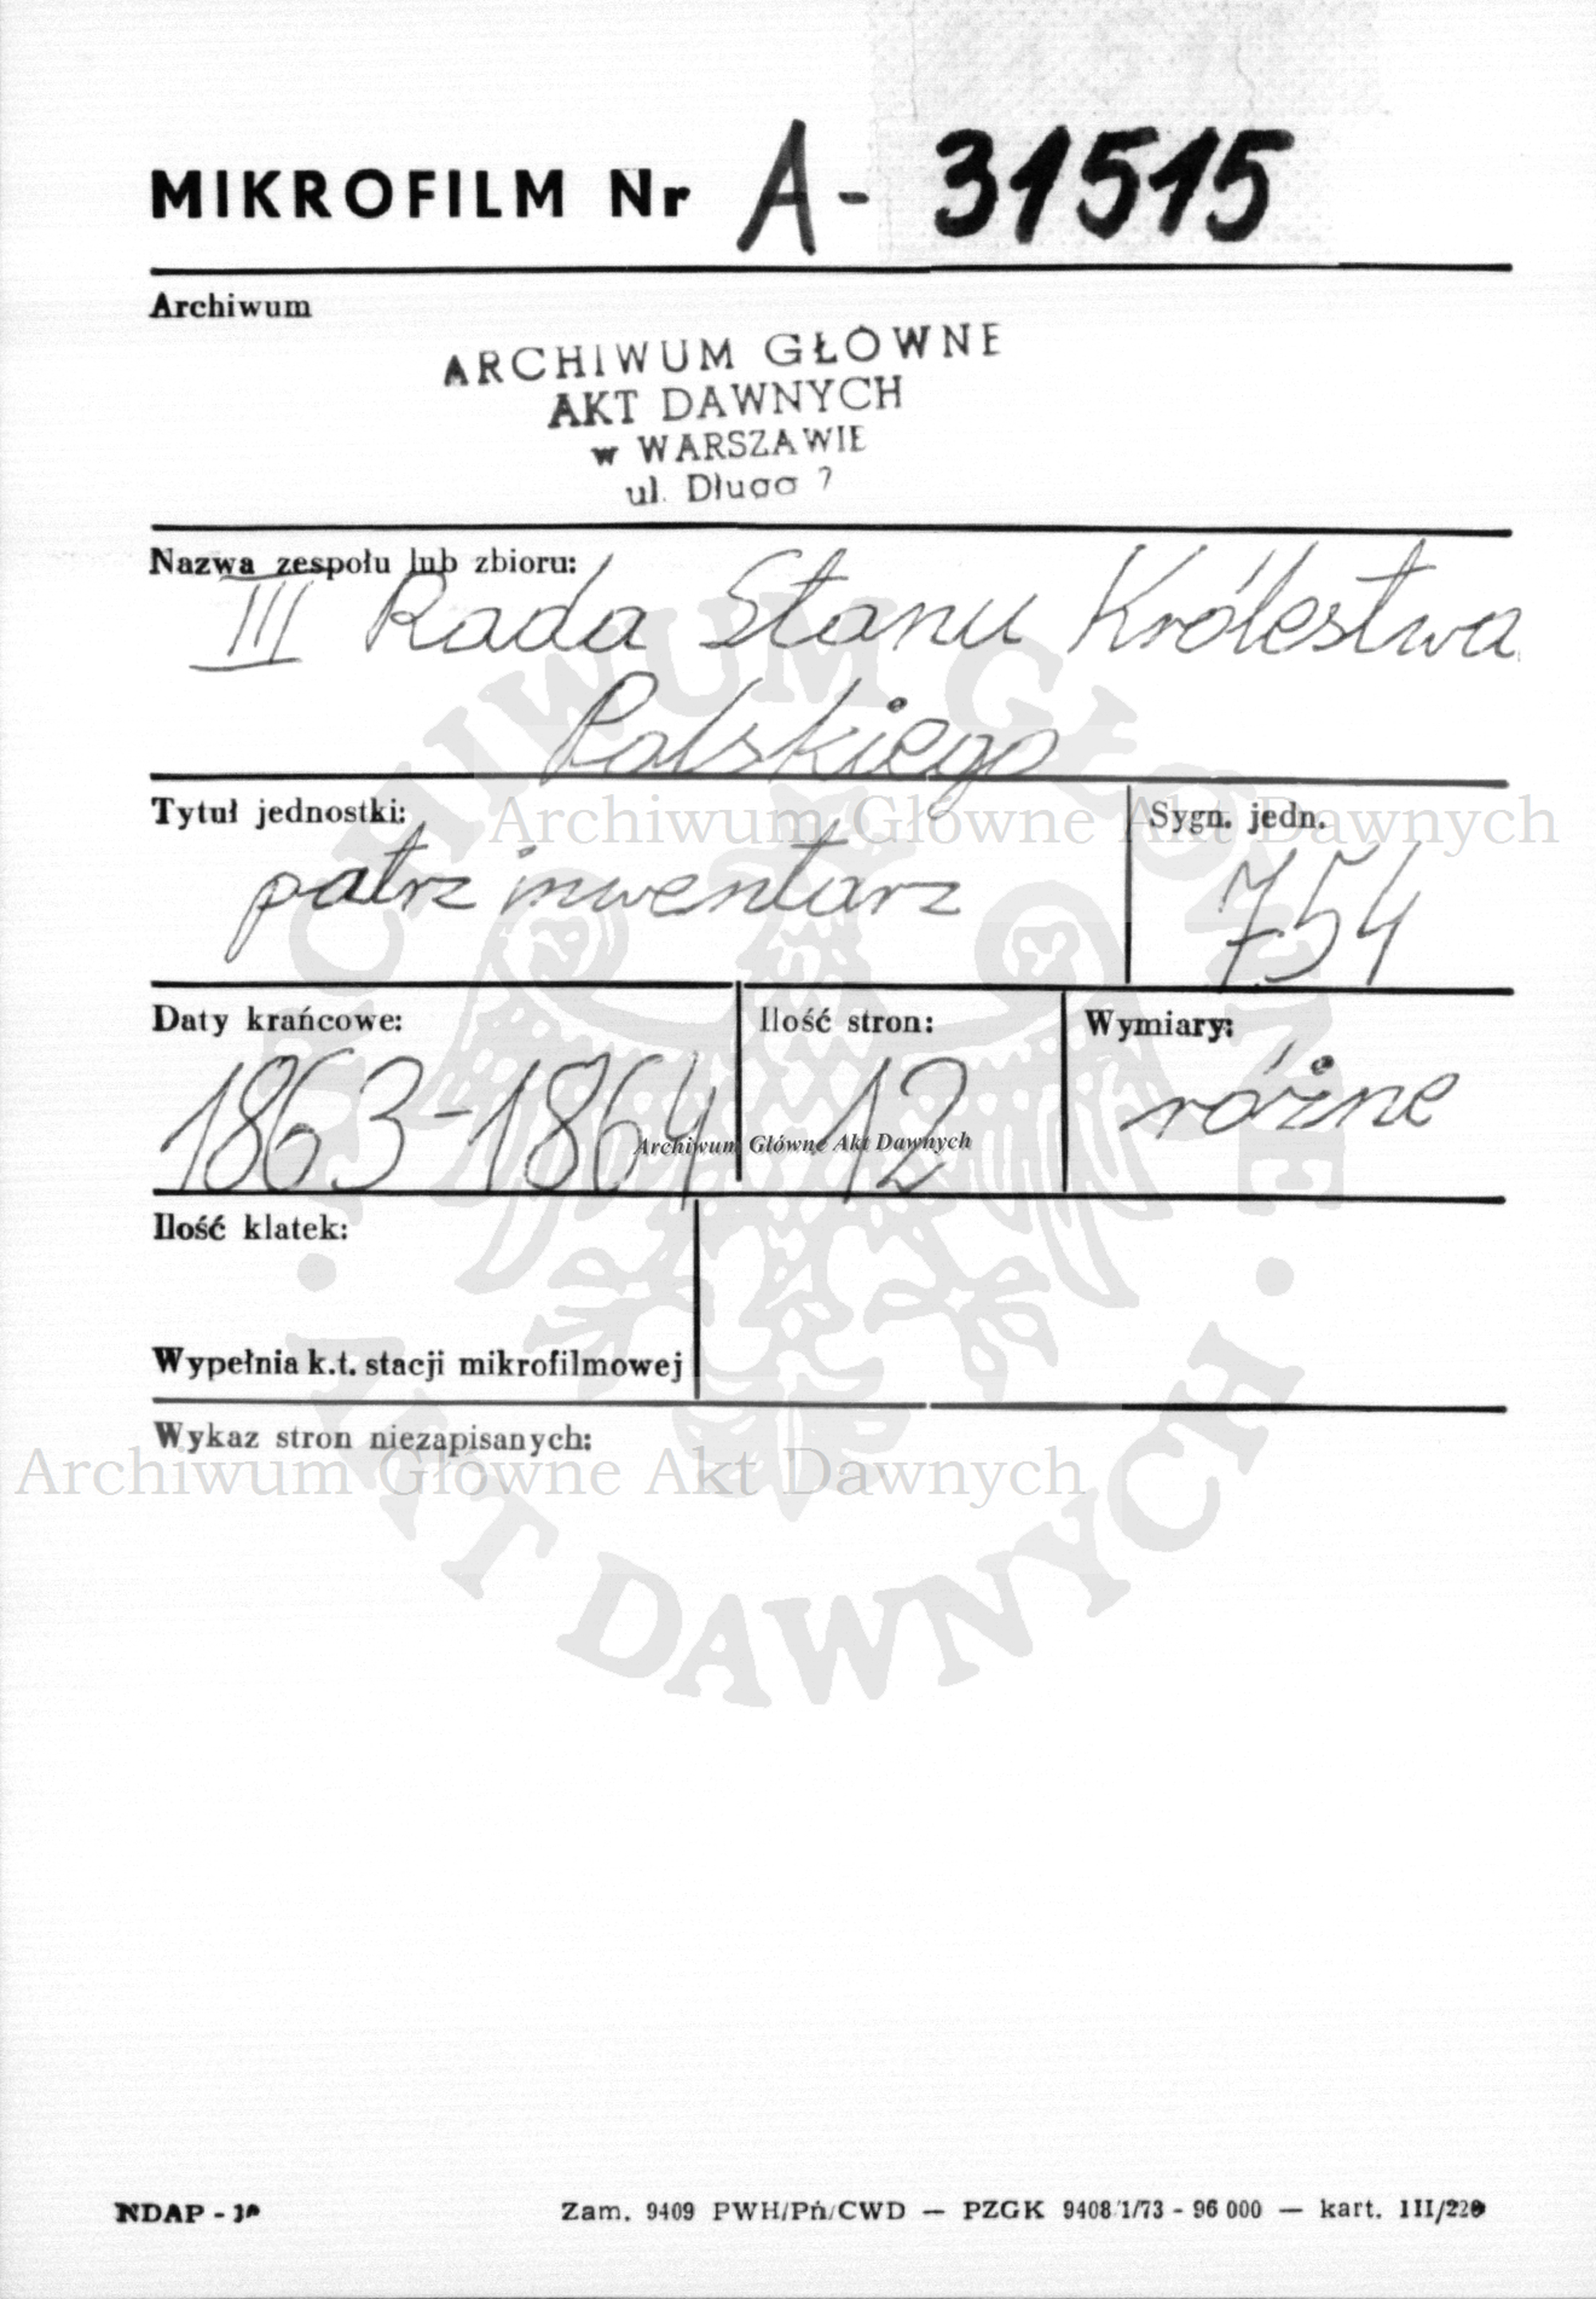 MIKROFILM Nr A- 31515
Archiwum
ARCHIWUM GŁÓWNE
AKT DAWNYCH
w WARSZAWIE
ul. Długa 7
Nazwa zespołu lub zbioru:
III Rada Stanu Królestwa
Polskiego
Tytuł jednostki: Sygn. jedn.
Archiwum Główne Akt Dawnych
patrz inwentarz 754
Daty krańcowe: Ilość stron: Wymiary:
1863-1864 12 różne
Archiwum Główne Akt Dawnych
Ilość klatek:
Wypełnia k.t. stacji mikrofilmowej
Wykaz stron niezapisanych:
Archiwum Główne Akt Dawnych
ARCHIWUM GŁÓWNE · AKT DAWNYCH ·
NDAP - Zam. 9409 PWH/Pń/CWD — PZGK 9408/1/73 - 96 000 — kart. III/220